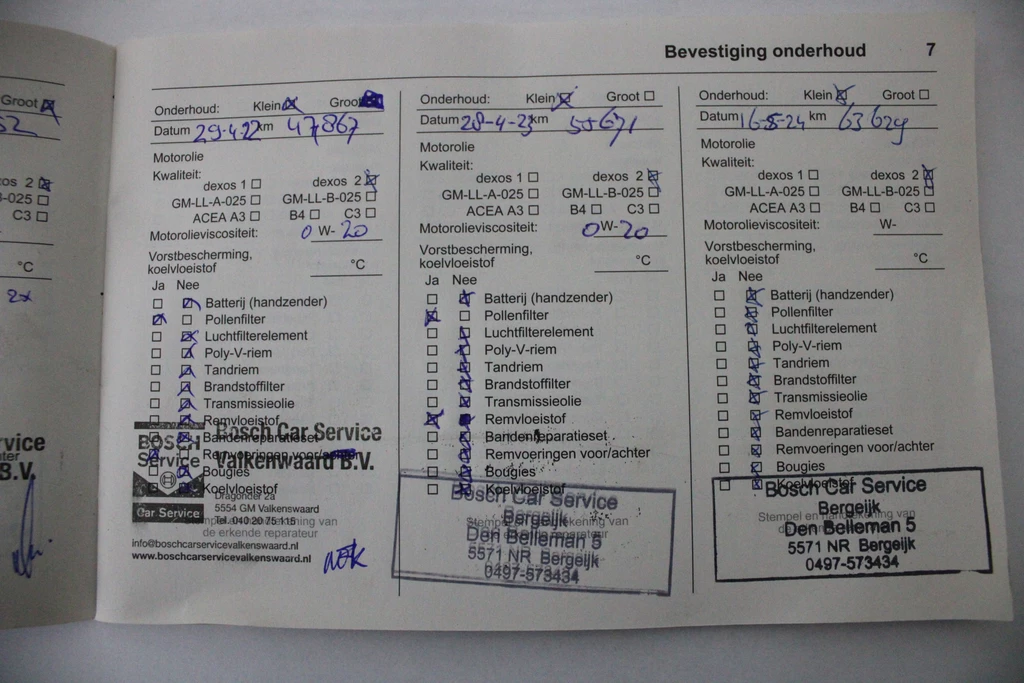 Groot
52
dexos 2
B-025
C3
°C
2x
Service
B.V.
Bevestiging onderhoud 7
Onderhoud: Klein Groot
Datum 29-4-22 km 47867
Motorolie
Kwaliteit:
dexos 1 dexos 2
GM-LL-A-025 GM-LL-B-025
ACEA A3 B4 C3
Motorolieviscositeit: 0 W- 20
Vorstbescherming,
koelvloeistof °C
Ja Nee
Batterij (handzender)
Pollenfilter
Luchtfilterelement
Poly-V-riem
Tandriem
Brandstoffilter
Transmissieolie
Remvloeistof
Bandenreparatieset
Remvoeringen voor/achter
Bougies
Koelvloeistof
BOSCH
Service
Car Service
Bosch Car Service
Valkenswaard B.V.
Dragonder 2a
5554 GM Valkenswaard
Tel. 040 20 75 115
de erkende reparateur
info@boschcarservicevalkenswaard.nl
www.boschcarservicevalkenswaard.nl
Onderhoud: Klein Groot
Datum 28-4-23 km 55671
Motorolie
Kwaliteit:
dexos 1 dexos 2
GM-LL-A-025 GM-LL-B-025
ACEA A3 B4 C3
Motorolieviscositeit: 0W-20
Vorstbescherming,
koelvloeistof °C
Ja Nee
Batterij (handzender)
Pollenfilter
Luchtfilterelement
Poly-V-riem
Tandriem
Brandstoffilter
Transmissieolie
Remvloeistof
Bandenreparatieset
Remvoeringen voor/achter
Bougies
Koelvloeistof
Bosch Car Service
Bergeijk
Den Belleman 5
5571 NR Bergeijk
0497-573434
Onderhoud: Klein Groot
Datum 16-5-24 km 63629
Motorolie
Kwaliteit:
dexos 1 dexos 2
GM-LL-A-025 GM-LL-B-025
ACEA A3 B4 C3
Motorolieviscositeit: W-
Vorstbescherming,
koelvloeistof °C
Ja Nee
Batterij (handzender)
Pollenfilter
Luchtfilterelement
Poly-V-riem
Tandriem
Brandstoffilter
Transmissieolie
Remvloeistof
Bandenreparatieset
Remvoeringen voor/achter
Bougies
Koelvloeistof
Stempel en handtekening van
Bosch Car Service
Bergeijk
Den Belleman 5
5571 NR Bergeijk
0497-573434